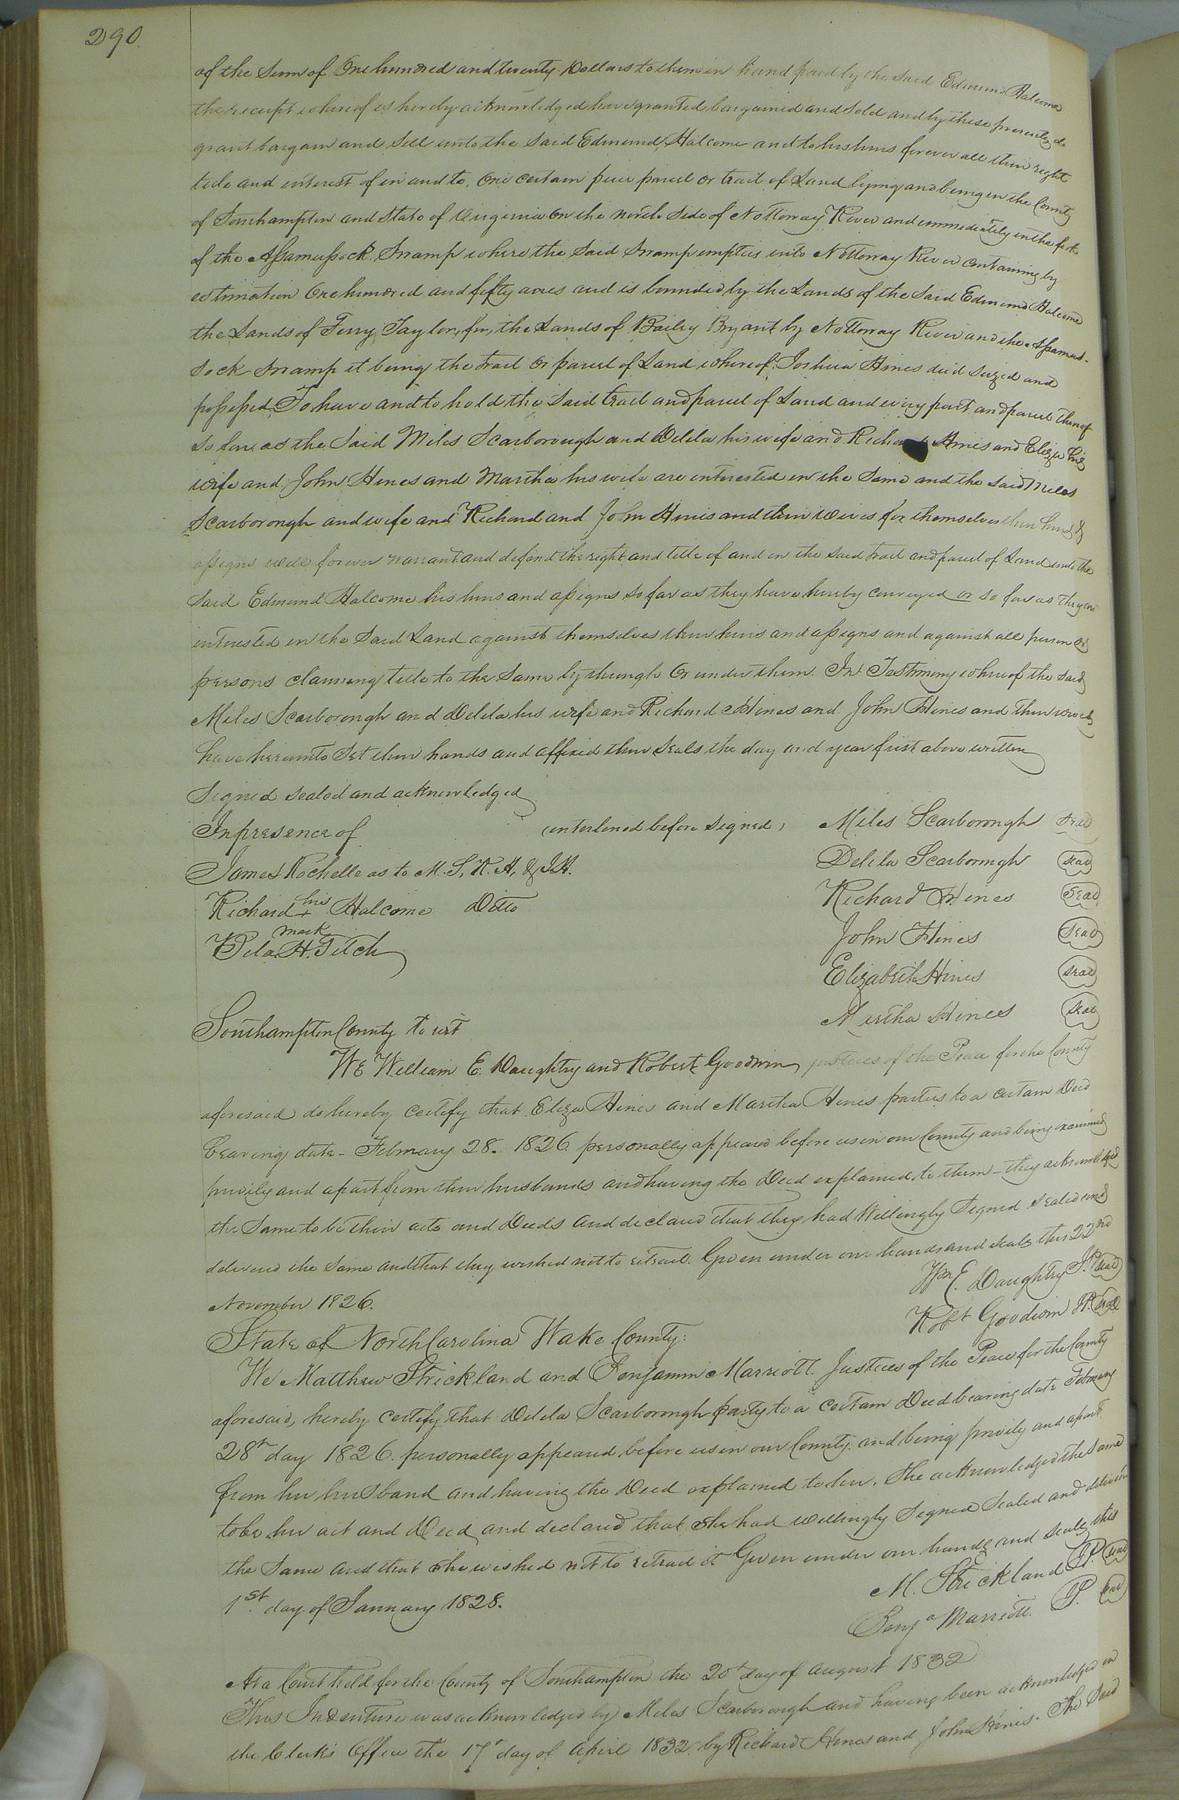 290
of the Sum of One hundred and twenty Dollars to them in hand paid by the said Edmund Halcome
the receipt whereof is hereby acknowledged have granted bargained and sold and by these presents do
grant bargain and sell unto the said Edmund Halcome and to his heirs forever all their right
title and interest of in and to, One certain piece parcel or tract of Land lying and being in the County
of Southampton and State of Virginia On the north Side of Nottoway River and immediately in the fork
of the Assamussock Swamp where the Said Swamp empties into Nottoway River Containing by
estimation One hundred and fifty acres and is bounded by the Lands of the Said Edmund Halcome
the Lands of Terry Taylor, for, the Lands of Bailey Bryant by Nottoway River and the Assamus-
sock Swamp it being the tract or parcel of Land whereof Joshua Hines died Seized and
possessed, To have and to hold the Said tract and parcel of Land and every part and parcel thereof
So far as the Said Miles Scarborough and Delila his wife and Richard Hines and Eliza his
wife and John Hines and Martha his wife are interested in the Same and the Said Miles
Scarborough and wife and Richard and John Hines and their wives for themselves their heirs &
assigns will forever warrant and defend the right and title of and in the Said tract and parcel of Land unto the
Said Edmund Halcome his heirs and assigns So far as they have hereby conveyed or so far as they are
interested in the Said Land against themselves their heirs and assigns and against all person or
persons claiming title to the Same by through Or under them. In Testimony whereof the said
Miles Scarborough and Delila his wife and Richard Hines and John Hines and their wives
have hereunto Set their hands and affixed their Seals the day and year first above written
Signed sealed and acknowledged
In presence of (enterlined before signed) Miles Scarborough Seal
James Rochelle as to M. S, R. H, & J.H. Delila Scarborough Seal
Richard his + mark Halcome Ditto Richard Hines Seal
Bela H. Titch John Hines Seal
Elizabeth Hines Seal
Martha Hines Seal
Southampton County to wit
We William E. Daughtry and Robert Goodwin justices of the Peace for the County
aforesaid do hereby certify that Eliza Hines and Martha Hines parties to a certain Deed
bearing date February 28. 1826 personally appeared before us in our County and being examined
privily and apart from their husbands and having the Deed explained to them - they acknowledged
the Same to be their acts and Deeds and declared that they had Willingly Signed Sealed and
delivered the Same and that they wished not to retract. Given under our hands and Seals this 22nd
November 1826. Wm E. Daughtry J.P. Seal
Robt Goodwin J.P. Seal
State of North Carolina Wake County:
We Matthew Strickland and Benjamin Marriott Justices of the Peace for the County
aforesaid, hereby certify that Delila Scarborough party to a certain Deed bearing date February
28th day 1826 personally appeared before us in our County, and being privily and apart
from her husband and having the Deed explained to her. She acknowledged the Same
to be her act and Deed, and declared that She had willingly Signed Sealed and delivered
the Same and that She wished not to retract it Given under our hands and Seals this
1st day of January 1828. M. Strickland J.P. Seal
Benja Marriott J.P. Seal
At a Court held for the County of Southampton the 20th day of August 1832
This Indenture was acknowledged by Miles Scarborough and having been acknowledged in
the Clerk's Office the 17th day of April 1832 by Richard Hines and John Hines. The Said